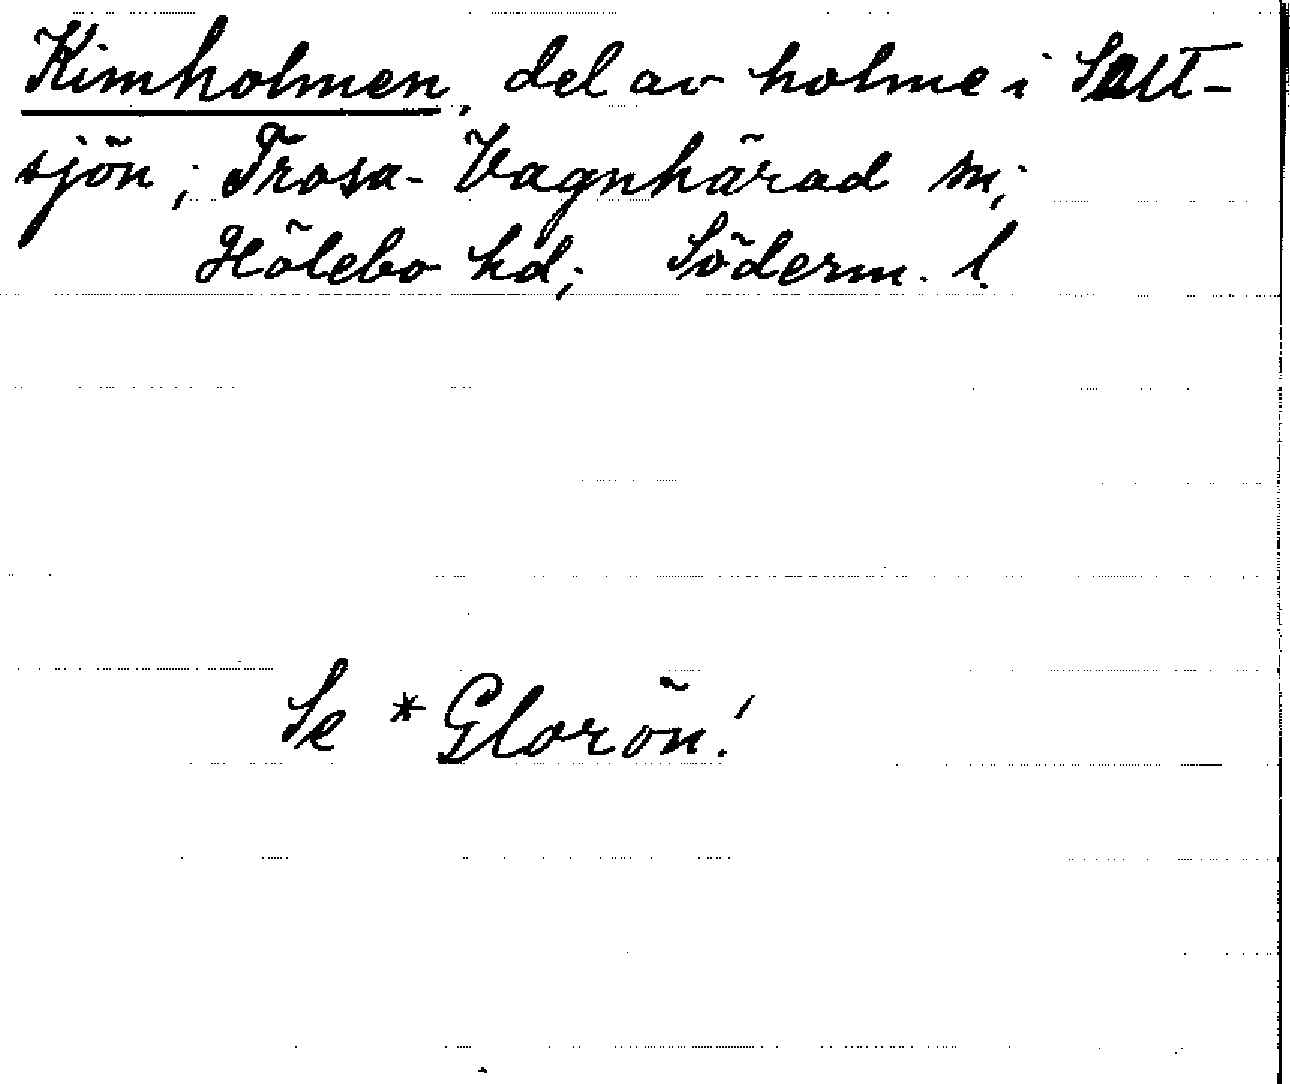 Kimholmen, del av holme i Salt-
sjön; Trosa-Vagnhärad sn;
Hölebo hd; Söderm. l.
Se *Glorön!